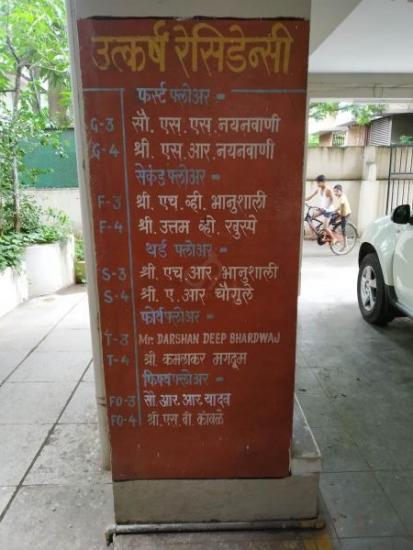 उत्कर्ष रेसिडेन्सी
फर्स्ट फ्लोअर =
G-3 सौ. एस. एस. नयनवाणी
G-4 श्री. एस. आर. नयनवाणी
सेकंड फ्लोअर =
F-3 श्री. एच. व्ही. भानुशाली
F-4 श्री. उत्तम व्ही. रबुस्पे
थर्ड फ्लोअर =
S-3 श्री. एच. आर. भानुशाली
S-4 श्री. ए. आर चौगुले
फोर्थ फ्लोअर =
T-3 Mr. DARSHAN DEEP BHARDWAJ
T-4 श्री. कमलाकर मगदूम
फिफ्थ फ्लोअर =
FO-3 सौ. आर. आर यादव
FO-4 श्री. एस. बी. कांबळे